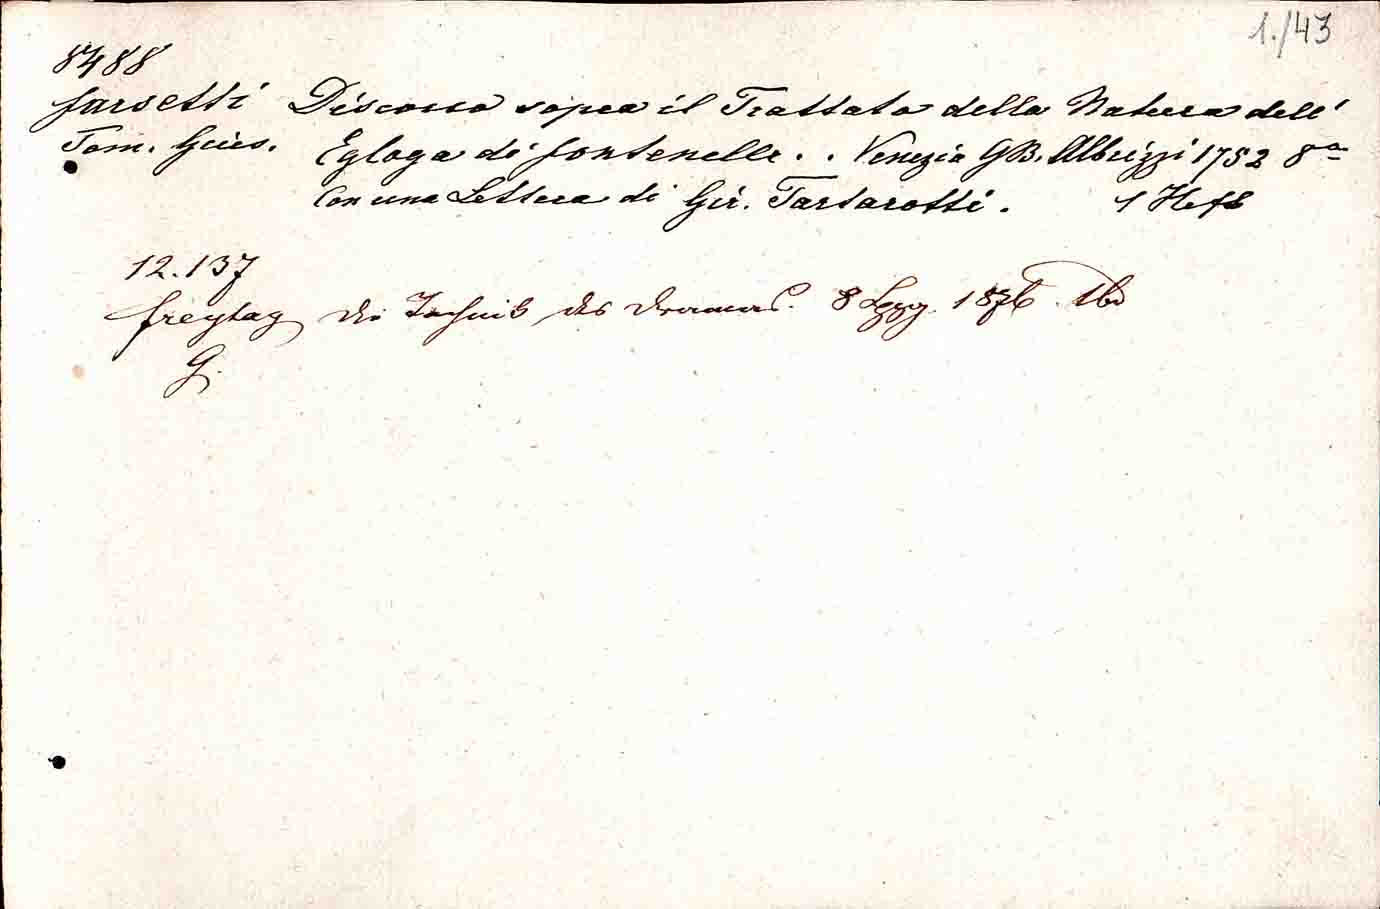 1./43
8488
Farsetti Discorso sopra il Trattato della Natura dell'
Tom. Gius. Egloga di Fontenelle. . Venezia GB. Albrizzi 1752 8º
Con una Lettera di Gir. Tartarotti. 1 Heft
12.137
Freytag die Technik des Dramas. 8 Lpzg. 1876. 1bd
G.